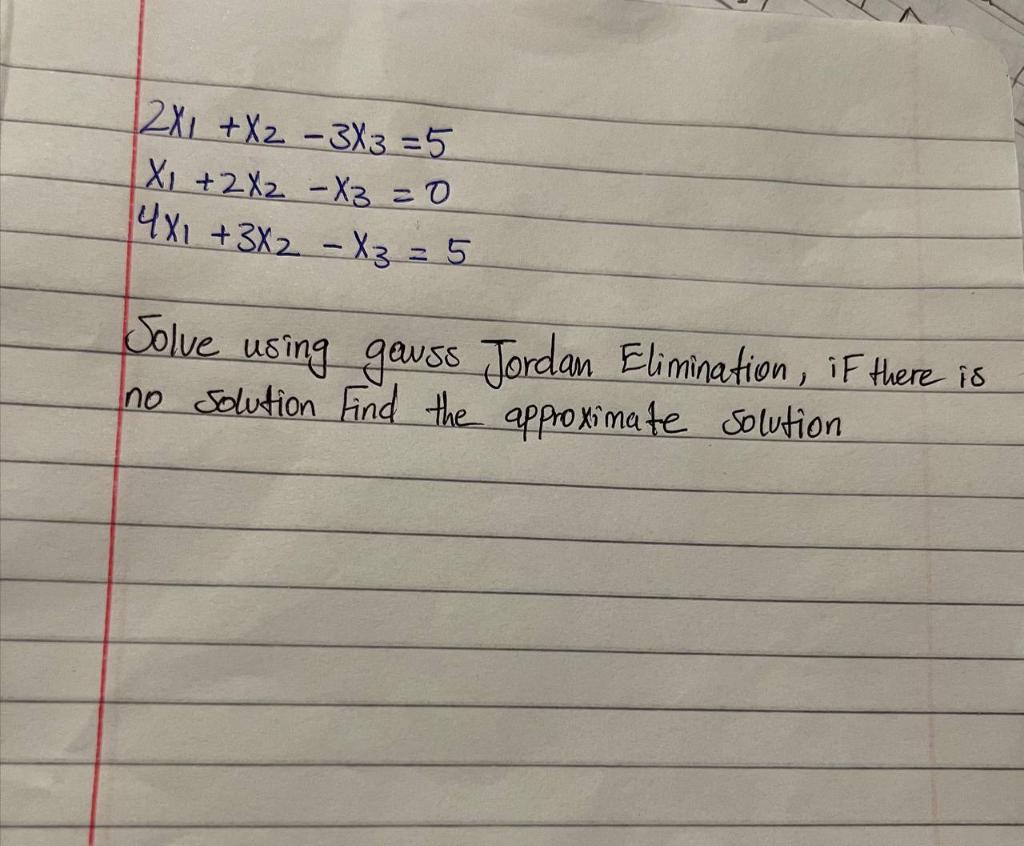 2X1 + X2 - 3X3 = 5
X1 + 2X2 - X3 = 0
4X1 + 3X2 - X3 = 5
Solve using gauss Jordan Elimination, iF there is
no solution Find the approximate solution